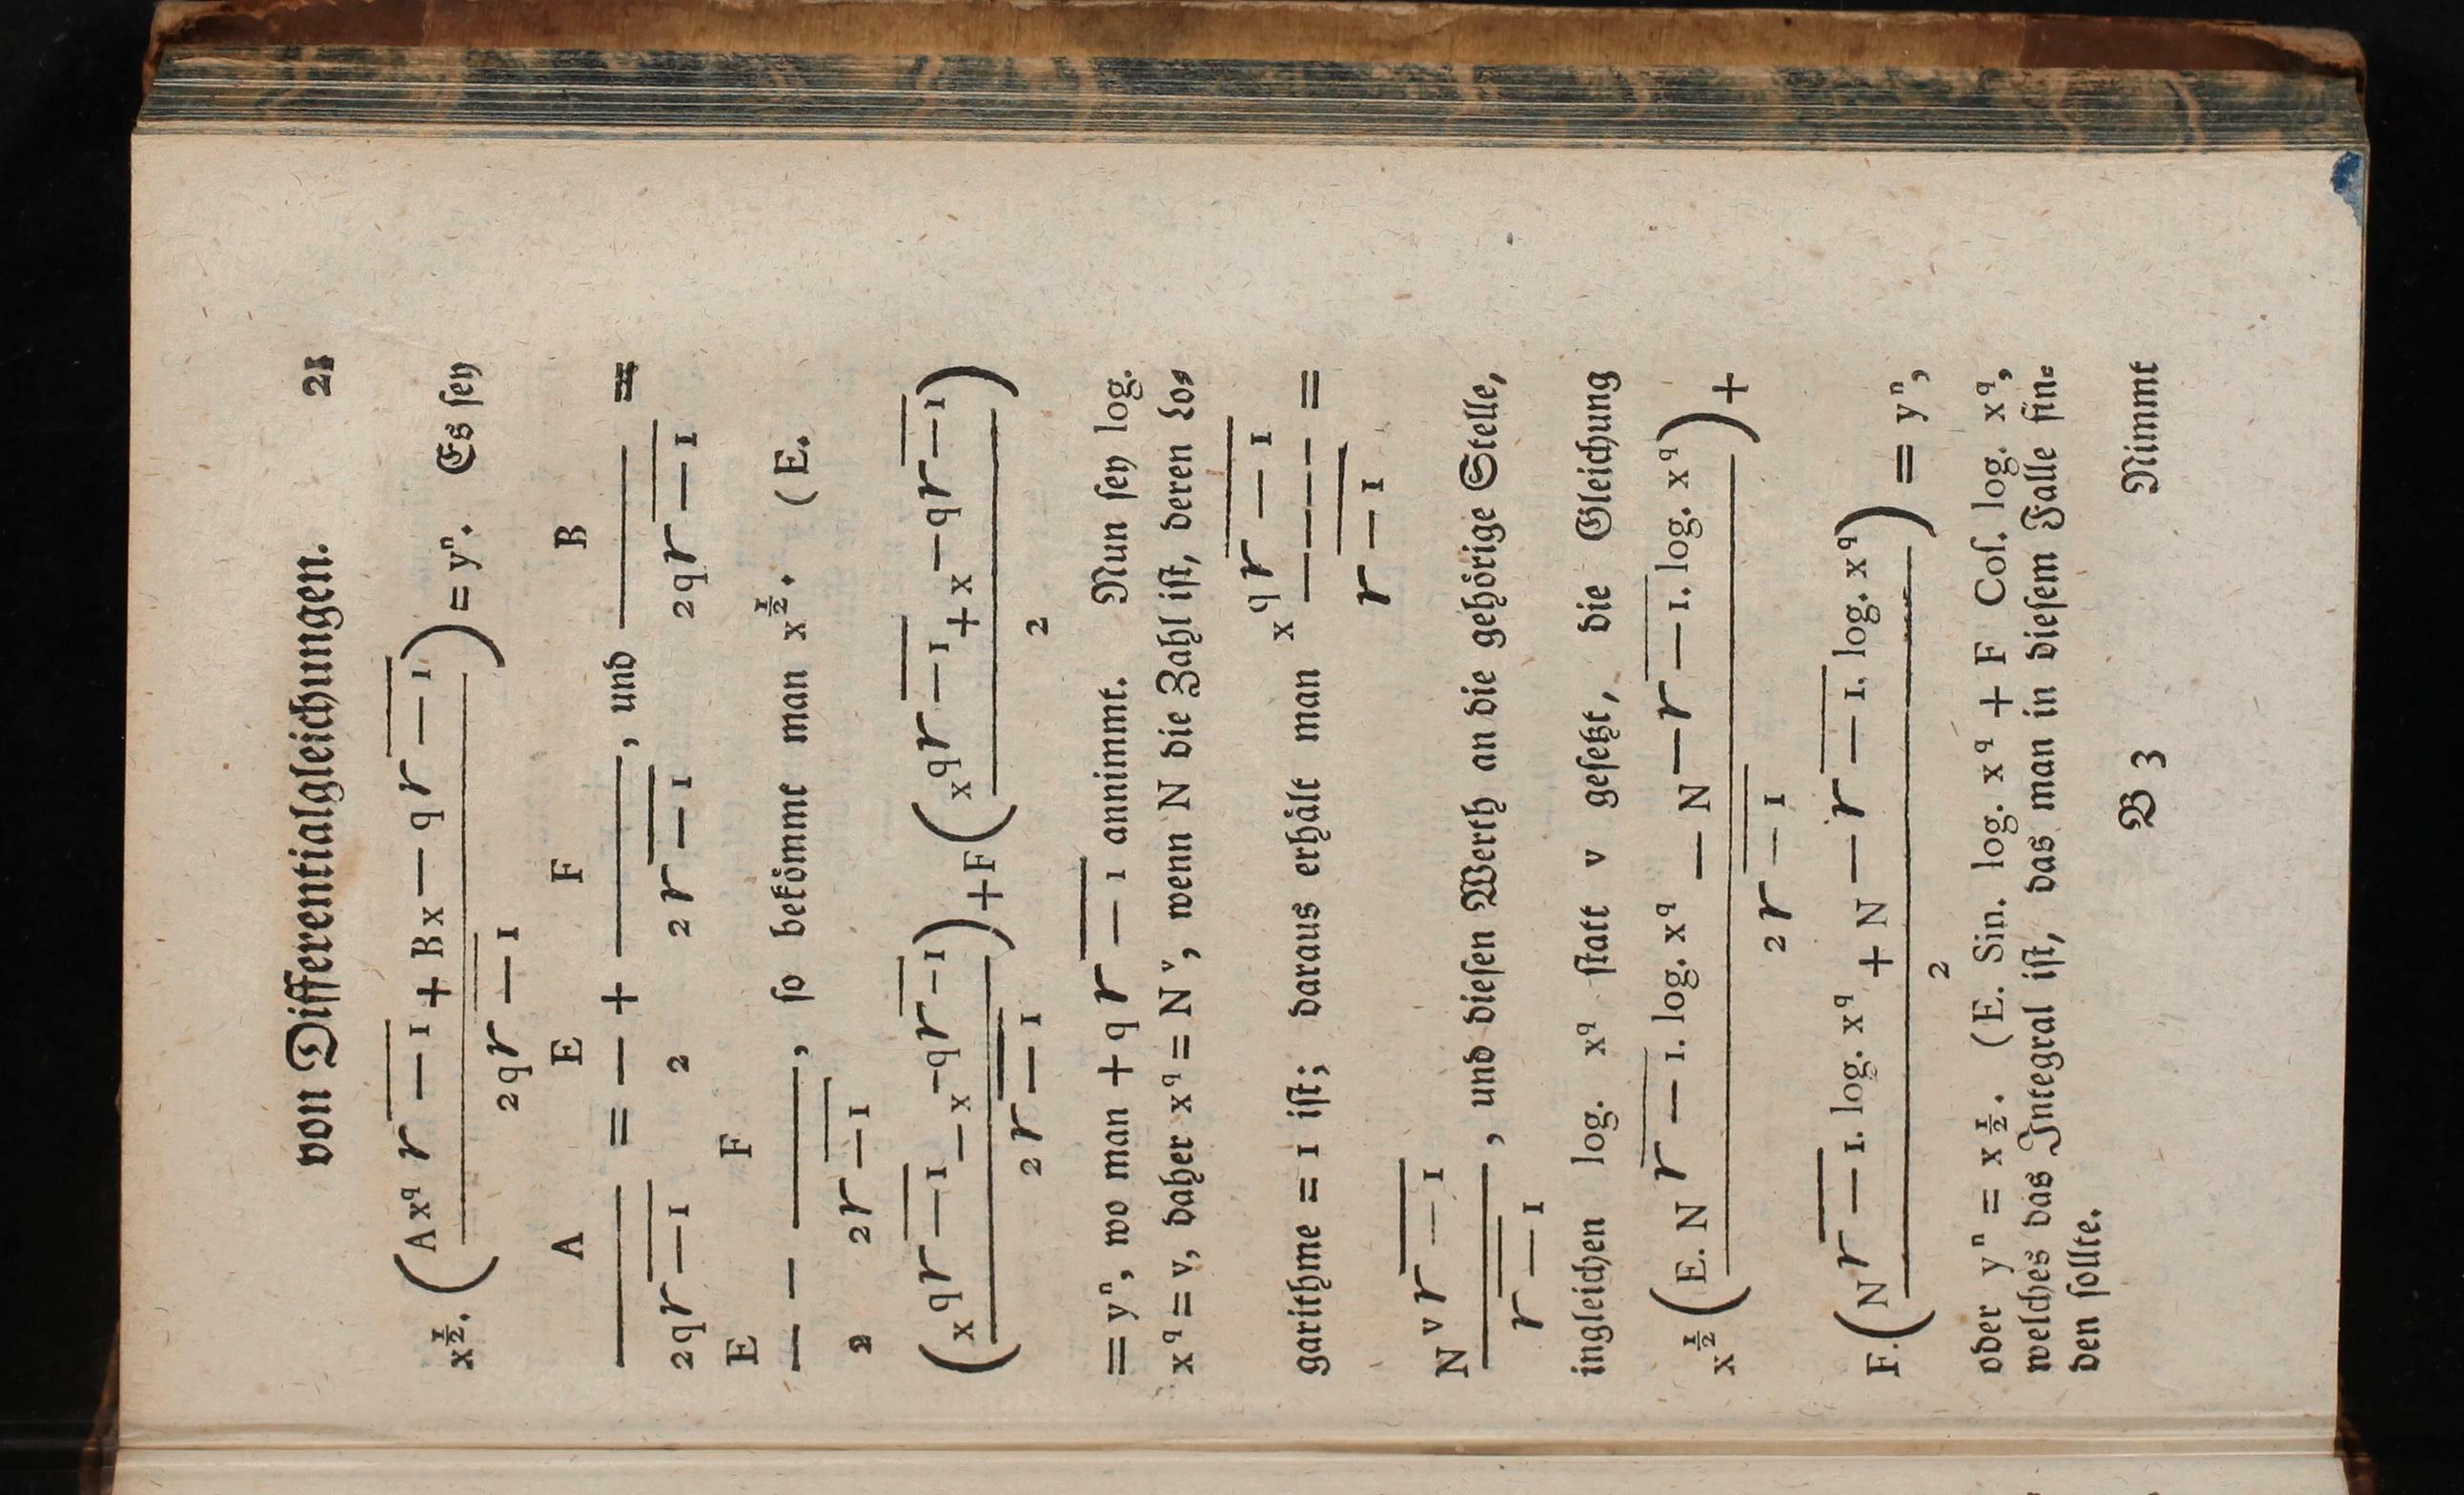 von Differentialgleichungen. 21
x^½. ( (Ax^q √‾−1 + Bx − q √‾−1) / (2q√‾−1) ) = yⁿ. Es ſey
A / (2q√‾−1) = E/2 + F / (2√‾−1), und B / (2q√‾−1) =
E/2 − F / (2√‾−1), ſo bekömmt man x^½. (E.
( (x^{q√‾−1} − x^{−q√‾−1}) / (2√‾−1) ) + F ( (x^{q√‾−1} + x^{−q√‾−1}) / 2 )
= yⁿ, wo man + q √‾−1 annimmt. Nun ſey log.
x^q = v, daher x^q = N^v, wenn N die Zahl iſt, deren Lo⸗
garithme = 1 iſt; daraus erhält man x^{q√‾−1} / √‾−1 =
N^{v√‾−1} / √‾−1, und dieſen Werth an die gehörige Stelle,
ingleichen log. x^q ſtatt v geſetzt, die Gleichung
x^½ ( (E. N^{√‾−1. log. x^q} − N^{−√‾−1. log. x^q}) / (2√‾−1) ) +
F. ( (N^{√‾−1. log. x^q} + N^{−√‾−1. log. x^q}) / 2 ) = yⁿ,
oder yⁿ = x^½. (E. Sin. log. x^q + F Coſ. log. x^q,
welches das Integral iſt, das man in dieſem Falle fin⸗
den ſollte.
B 3 Nimmt